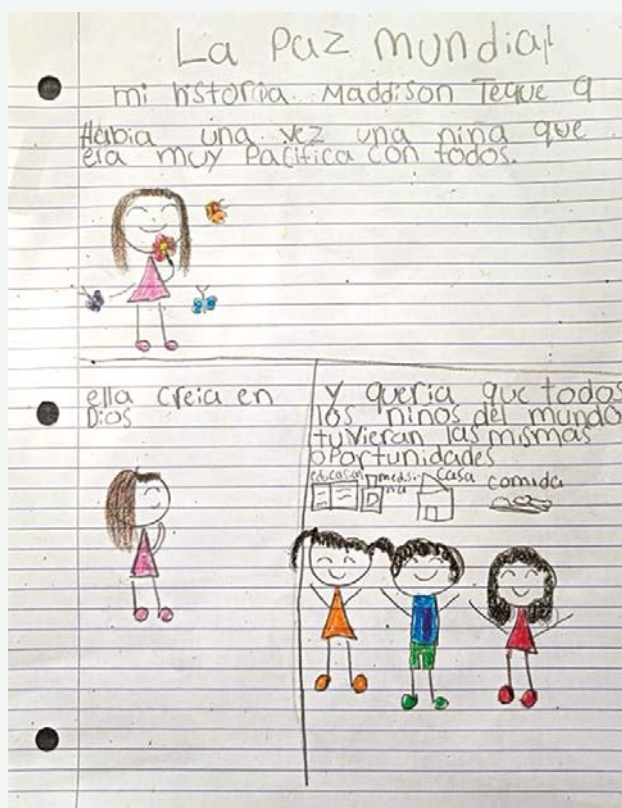 La Paz Mundial
mi historia. Maddison Teque 9
Había una vez una niña que
era muy Pacifica con todos.
ella creia en
Dios
y queria que todos
los niños del mundo
tuvieran las mismas
oportunidades
educasion
medsi-
na
casa
comida